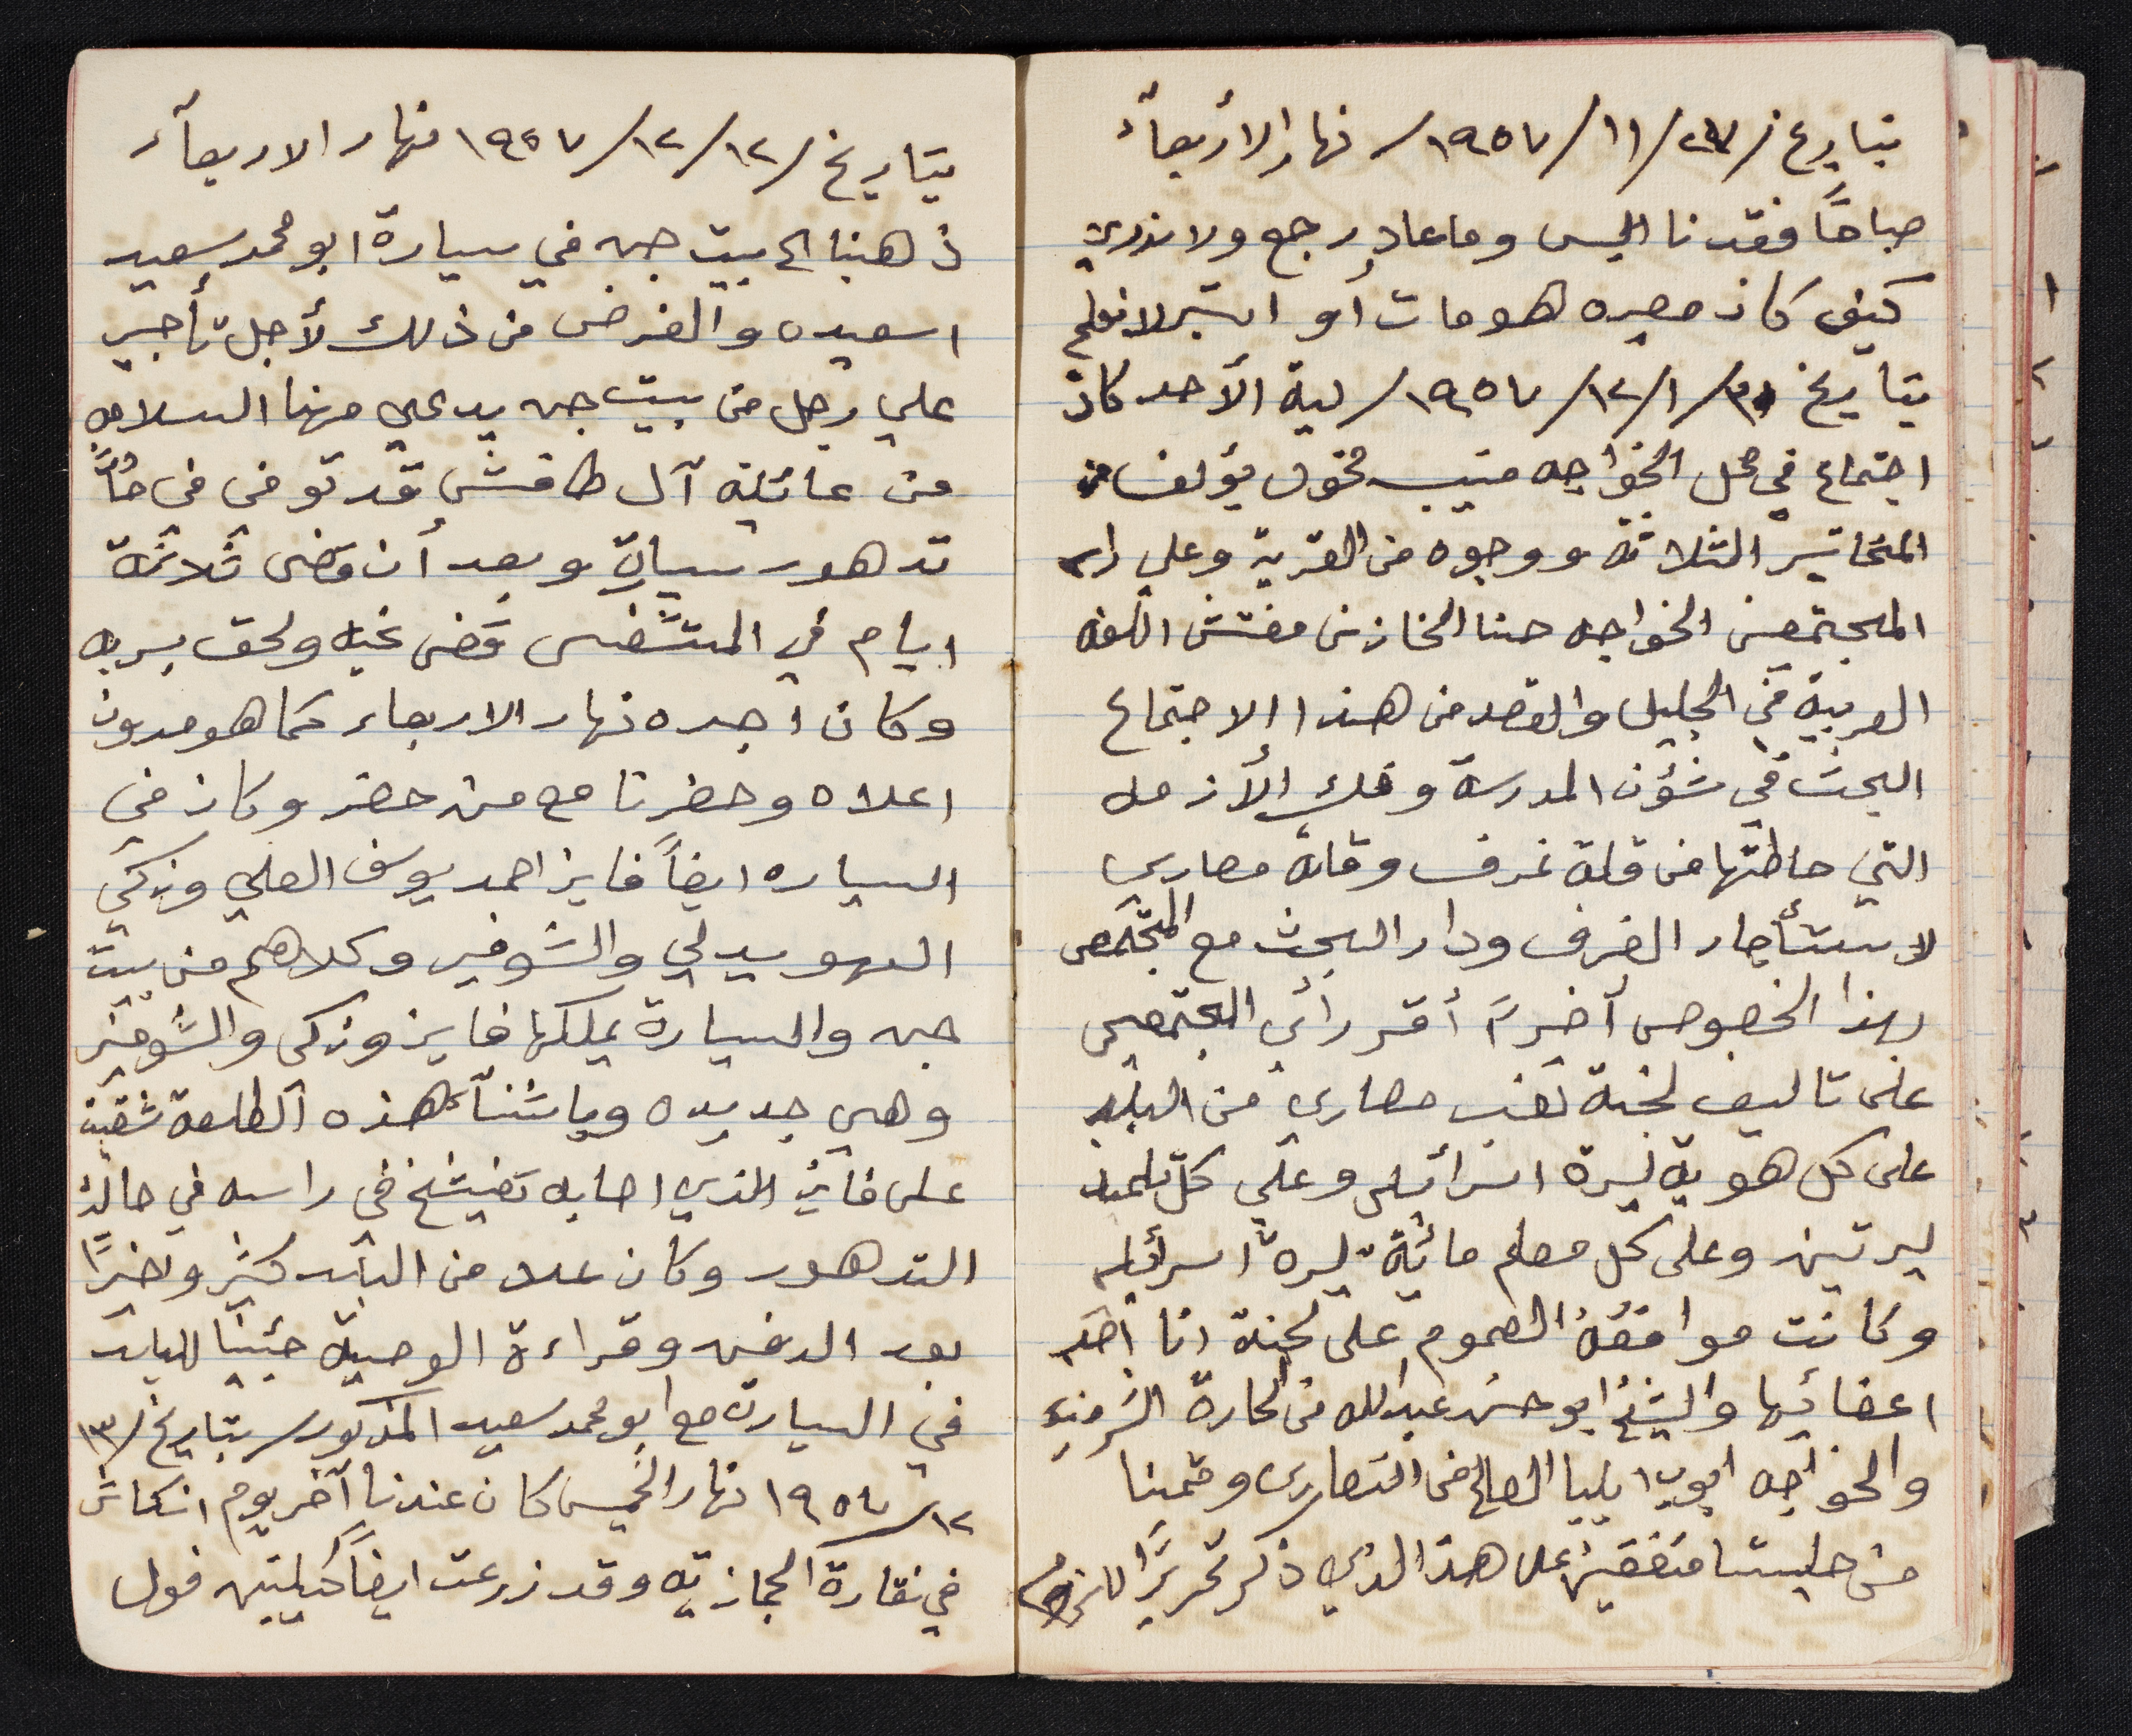 بتاريخ /٢٧/ ١١/ ١٩٥٧/ نهار الأربعآء
صباحًا فقدنا البس وما عاد رجع ولا ندري
كيف كان مصيره هو مات أو لا نعلم
بتاريخ ١/ ١٢/ ١٩٥٧/ ليلة الأحد كان
اجتماع في محل الخواجه منيب مخول يؤلف من
المخاتير الثلاثه ووجوه من القرية وعلى راس
المجتمعين الخواجه حنا الخازن مفتش اللغه
العربية في الجليل والقصد من هذا الاجتماع
البحث في شؤن المدرسة وفك الأزمه
التي حاطتها من قلة غرف وقلة مصاري
لاستأجار الغرف ودار البحث مع المجتمعين
بهذا الخصوص أخيرً أقر رأي المجتمعين
على تاليف لجنة مصاري من البلد
على كل هوية ليرة اسرائيلي وعلى كل تلميذ
ليرتين وعلى كل معلم مائية ليرة اسرائيليه
وكانت موافقة العموم على لجنة انا أحد
اعضائها والشيخ ابو حسن عبدالله من الحارة الشرقيه
والخواجه ايوب ايليا الصالح من النصارى وقمنا
من جليستنا متفقين على هذا الذي ذكر تحريرًا
بتاريخ /١٢/ ١٢/ ١٩٥٧ نهار الاربعآء
ذهبنا الى بيت جن في سيارة ابو محمد سعيد
اسعيده والغرض من ذلك لأجل تأجير
على رجل من بيت جن يدعى مهنا السلامه
من عائلة آل طافش قد توفى في حادث
تدهور سيارة وبعد أن قضى ثلاثة
ايام في المستشفى قضى نحبه ولحق بربه
وكان اجره نهار الاربعاء كما هو مدون
اعلاه وحضرنا مع من حضر وكان في
السياره ايضاً فايز احمد يوسف العلي وزكي
والشوفير وكلاهم من بيت
جن والسيارة يملكها فايز وزكى والشوفير
وهي جديده وباثنآء هذه الطلعة
على فايز الذي اصابه تفيشخ في راسه في حالة
التدهور وكان علا من البلد كثير واخيرًا
بعد الدفن وقراءة الوصية جئنا للبلد
في السيارة مع ابو محمد سعيد المذكور/ بتاريخ /١٣
/١٢ ١٩٥٧ نهار الخميس كان عندنا آخر يوم انكاش
في نقارة الحجازية وقد زرعت ايضاً كيلتين فول